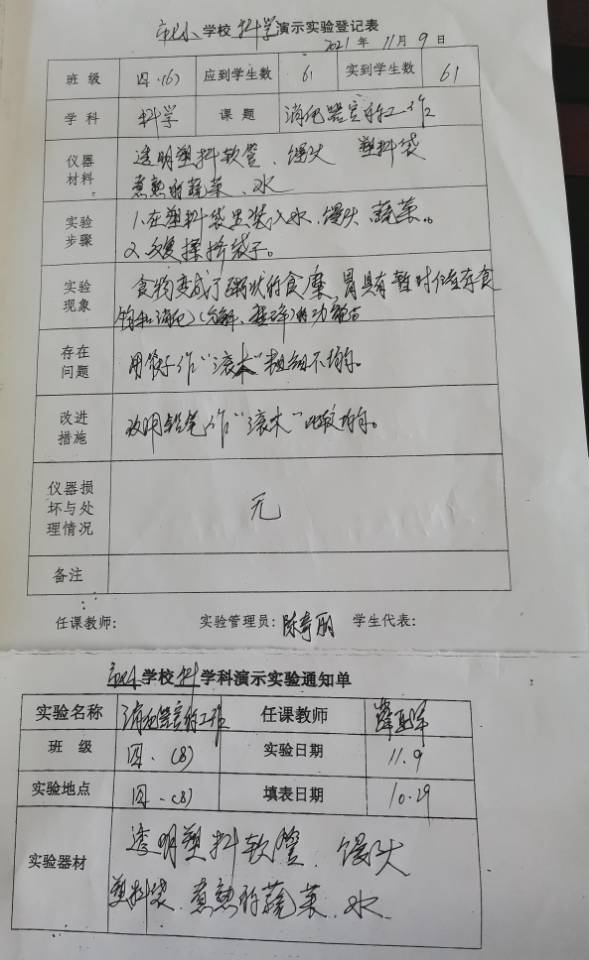 学校 科学 演示实验登记表
2021 年 11 月 9 日
班 级 四·(6) 应到学生数 61 实到学生数 61
学 科 科学 课 题 消化器官的工作
仪器材料 透明塑料软管、馒头 塑料袋
煮熟的蔬菜、水
实验步骤 1.在塑料袋里装入水、馒头、蔬菜。
2.反复揉挤袋子。
实验现象 食物变成了粥状的食糜,胃具有暂时贮存食
物和消化(分解、)的功能
存在问题 用筷子作“滚木”粗细不均匀。
改进措施 改用铅笔作“滚木”比较均匀。
仪器损坏与处理情况 无
备注
任课教师: 实验管理员: 陈奇丽 学生代表:
学校 科 学科演示实验通知单
实验名称 消化器官的工作 任课教师
班 级 四·(8) 实验日期 11.9
实验地点 四·(8) 填表日期 10.29
实验器材 透明塑料软管、馒头
塑料袋、煮熟的蔬菜、水